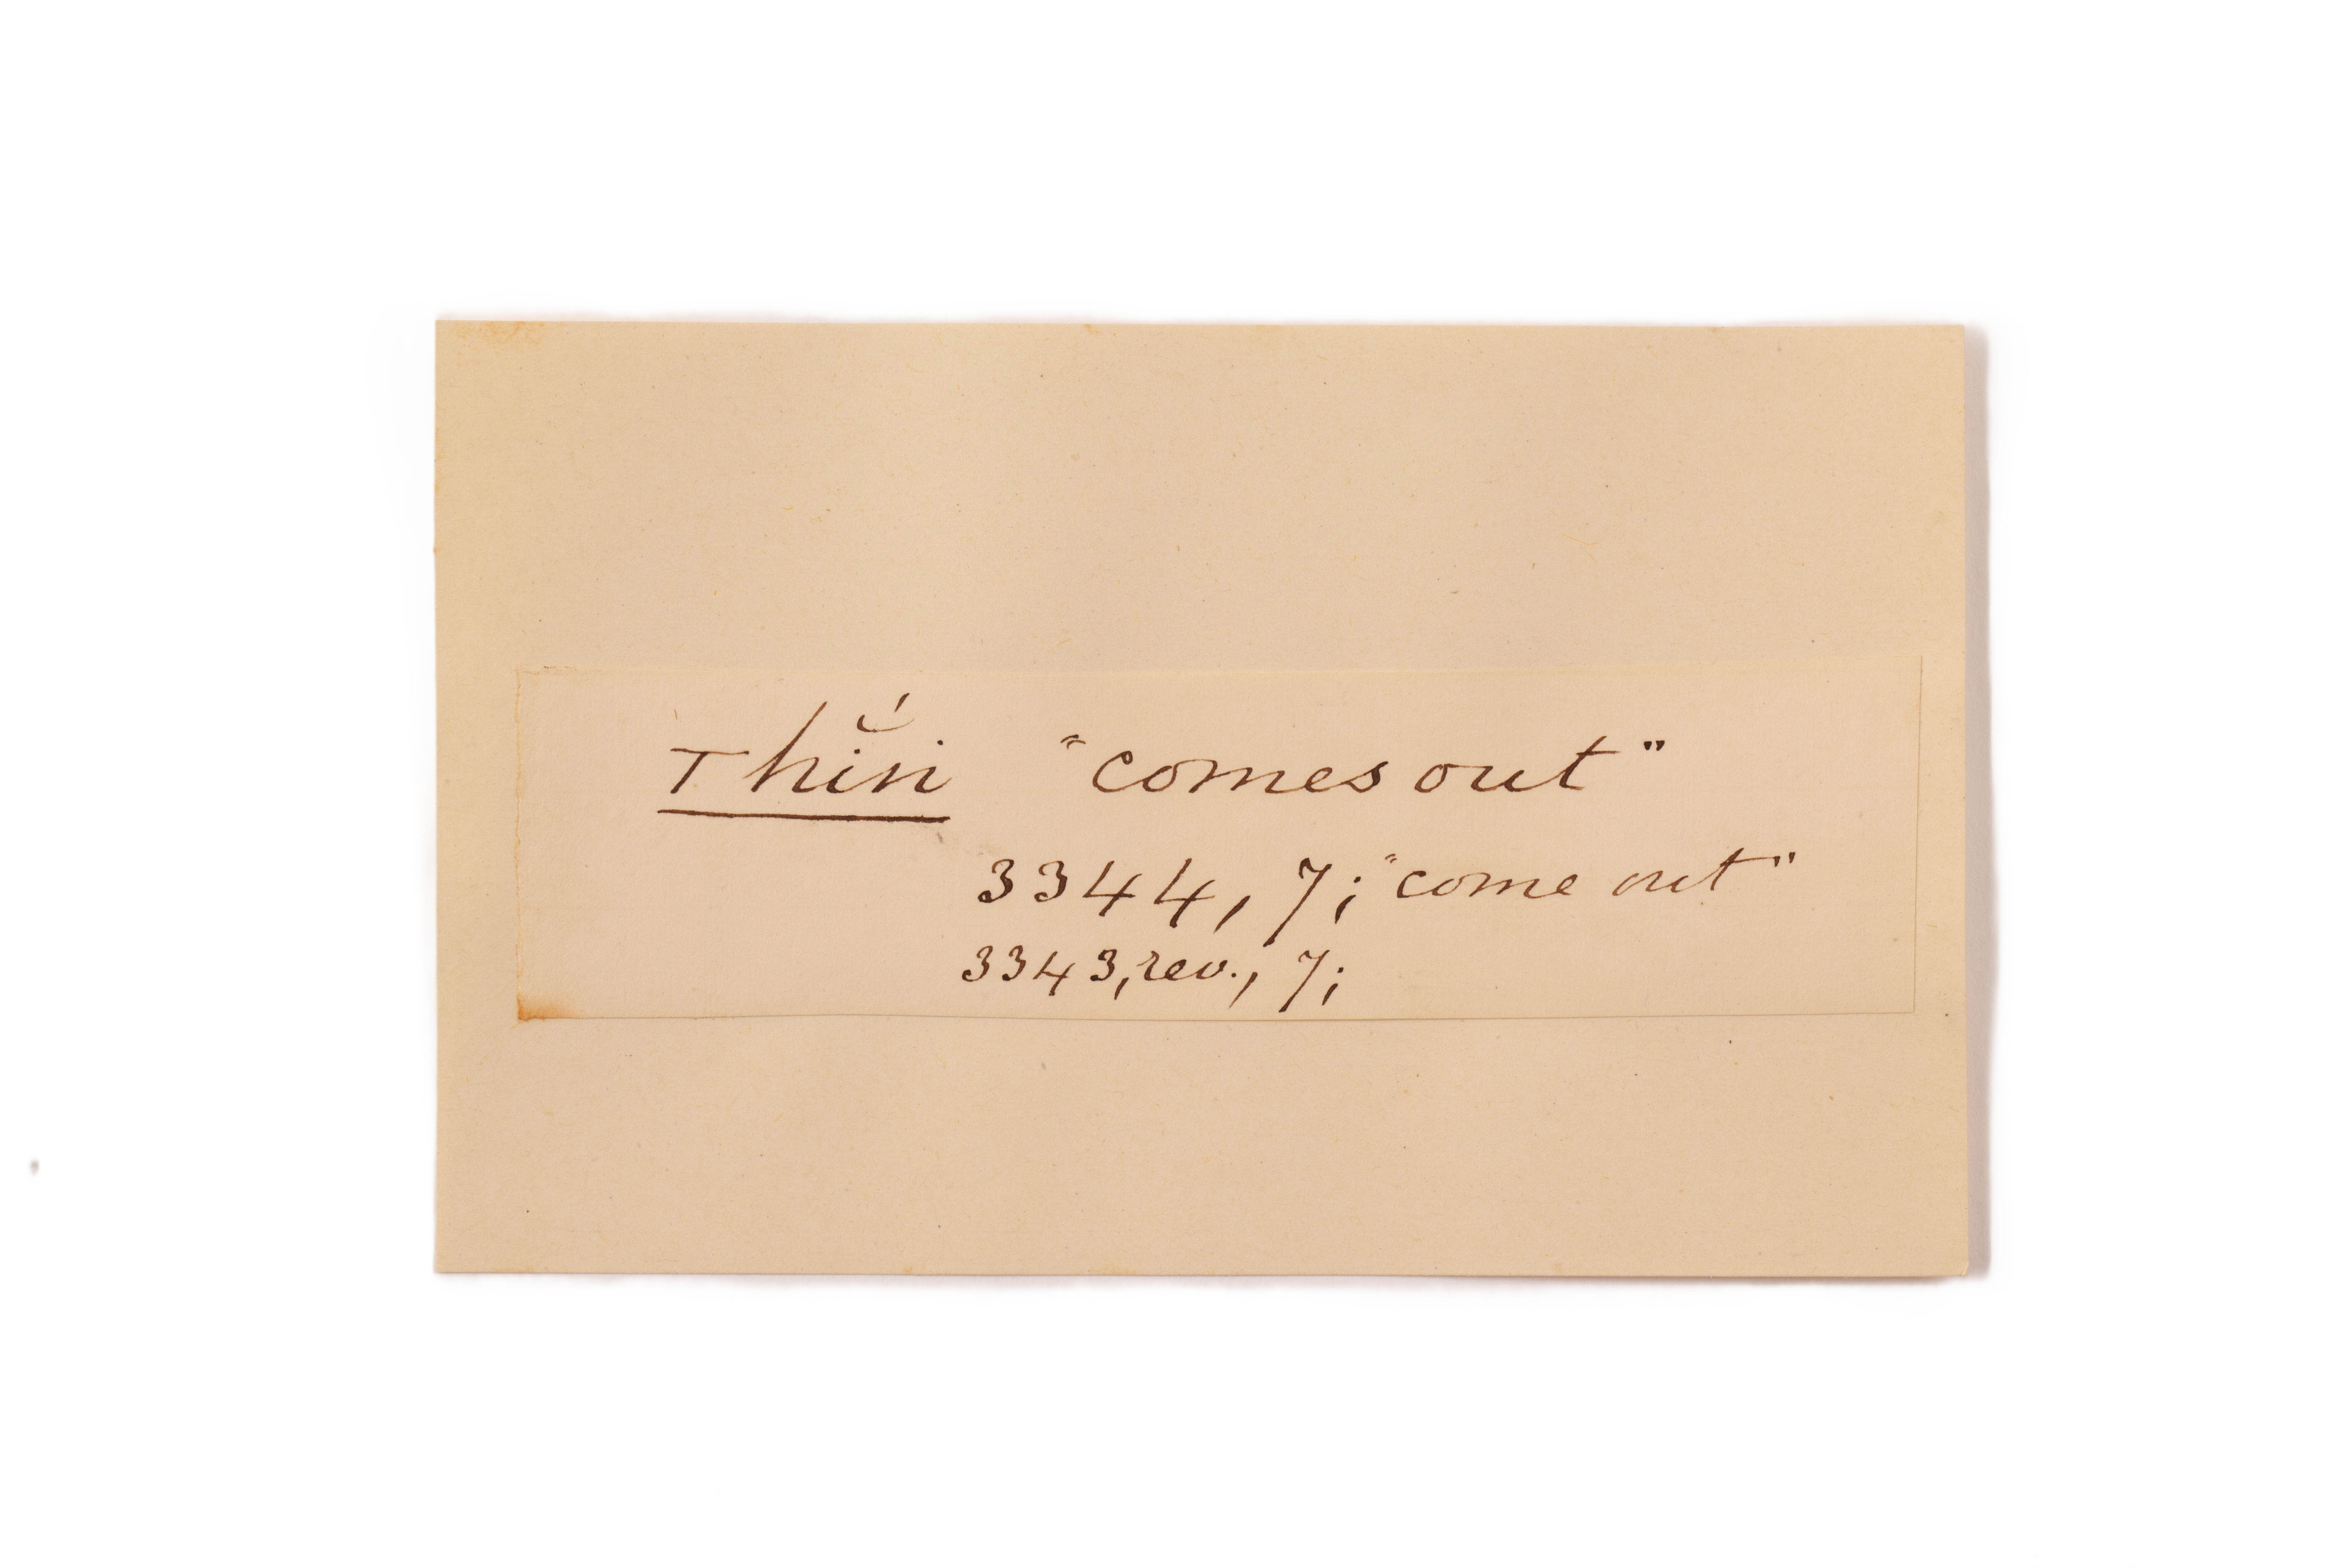 Thĭ́ni "comes out"
3344, 7; "come out"
3343, rev., 7;